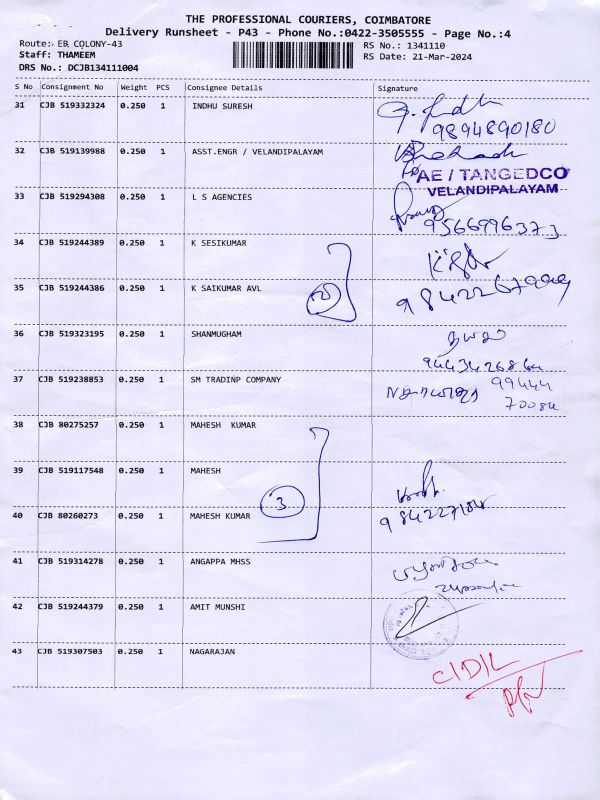 THE PROFESSIONAL COURIERS, COIMBATORE
Delivery Runsheet - P43 - Phone No.:0422-3505555 - Page No.:4
Route: EB COLONY-43 RS No.: 1341110
Staff: THAMEEM RS Date: 21-Mar-2024
DRS No.: DCJB134111004
S No Consignment No Weight PCS Consignee Details Signature
31 CJB 519332324 0.250 1 INDHU SURESH
9894890180
32 CJB 519139988 0.250 1 ASST.ENGR / VELANDIPALAYAM
AE / TANGEDCO
VELANDIPALAYAM
33 CJB 519294308 0.250 1 L S AGENCIES
9566996373
34 CJB 519244389 0.250 1 K SESIKUMAR
35 CJB 519244386 0.250 1 K SAIKUMAR AVL
36 CJB 519323195 0.250 1 SHANMUGHAM
37 CJB 519238853 0.250 1 SM TRADINP COMPANY
99444
70084
38 CJB 80275257 0.250 1 MAHESH KUMAR
39 CJB 519117548 0.250 1 MAHESH
3
40 CJB 80260273 0.250 1 MAHESH KUMAR
41 CJB 519314278 0.250 1 ANGAPPA MHSS
42 CJB 519244379 0.250 1 AMIT MUNSHI
43 CJB 519307503 0.250 1 NAGARAJAN